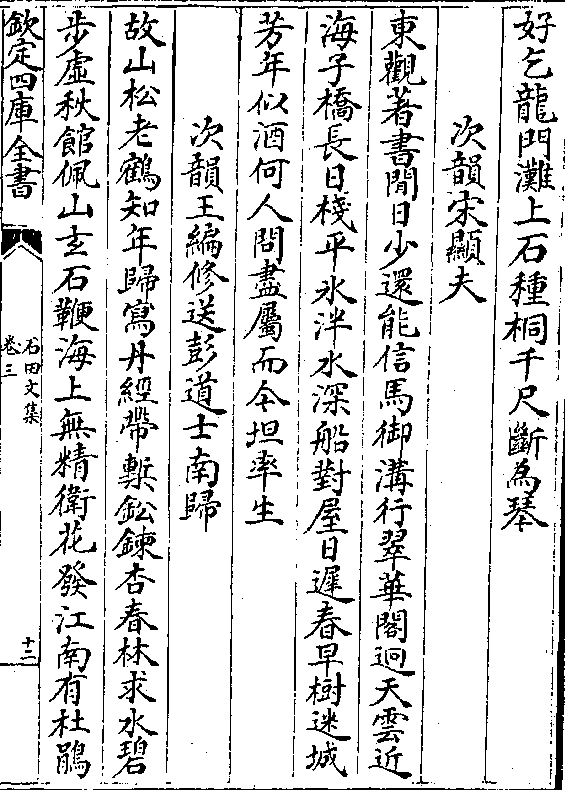 好乞龍門灘上石種桐千尺斷為琴
次韻宋顯夫
東觀著書閒日少還能信馬御溝行翠華閣迥天雲近
海子橋長日棧平氷泮水深船對屋日遲春早樹迷城
芳年似酒何人問盡屬而今坦率生
次韻王編修送彭道士南歸
故山松老鶴知年歸寫丹經帶槧鈆鍊杏春林求水碧
步虛秋館佩山玄石鞭海上無精衛花發江南有杜鵑
欽定四庫全書
石田文集
卷三
十三